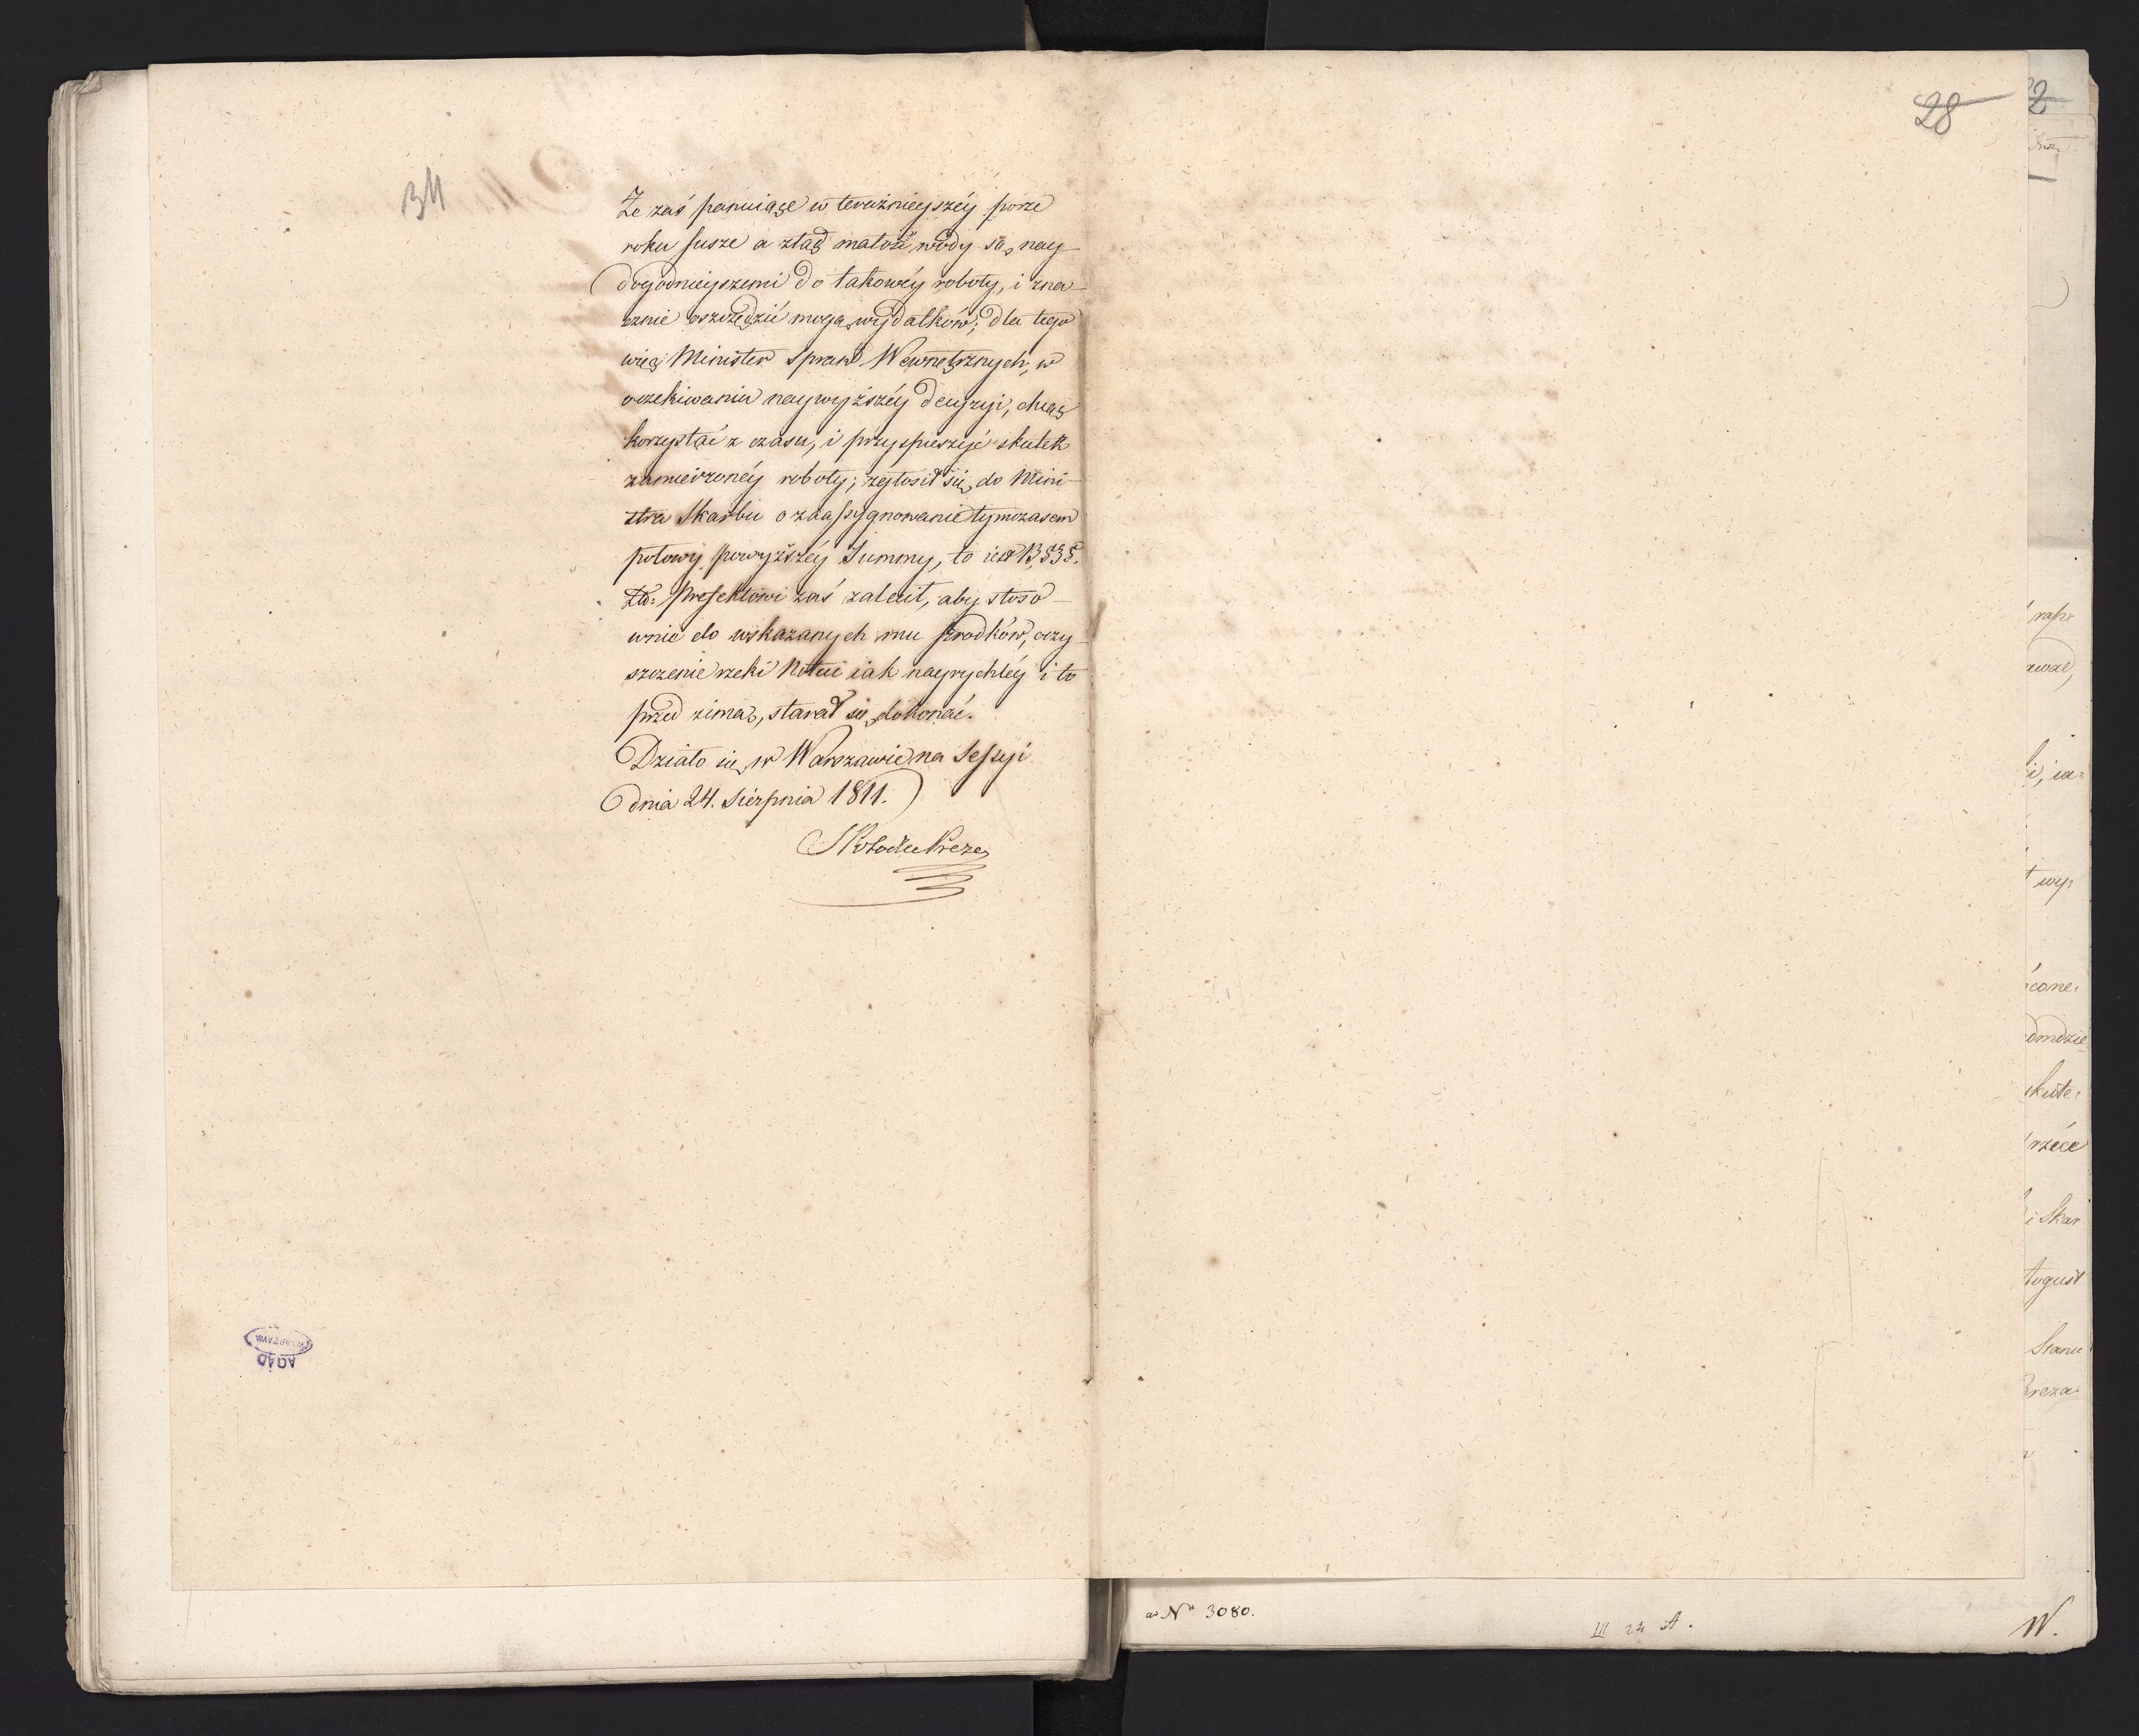 28
34
Że zaś panuiące w teraźnieyszéy porze
roku susze a ztąd małość wody są nay-
dogodnieyszemi do takowéy roboty, i zna-
cznie oszczędzić mogą wydatków; dla tego
więc Minister Spraw Wewnętrznych, w
oczekiwaniu naywyższéy decyzyi, chcąc
korzystać z czasu, i przyspieszyć skutek
zamierzonéy roboty; zgłosił się do Mini-
stra Skarbu o zaassygnowanie tymczasem
połowy powyższéy Summy, to iest 13,838.
Złł: Prefektowi zaś zalecił, aby stoso-
wnie do wskazanych mu środków, oczy-
szczenie rzeki Noteci iak nayrychléy i to
przed zimą, starał się dokonać.
Działo się w Warszawie na Sessyi
dnia 24. Sierpnia 1811.
AGAD
WARSZAWA
Nº 3080.
III 24 A.
W.
2
rapp
awae,
i, ia=
wy=
cone=
omdzie
skute=
rzéce
i Skar
August
Stanu
Breza